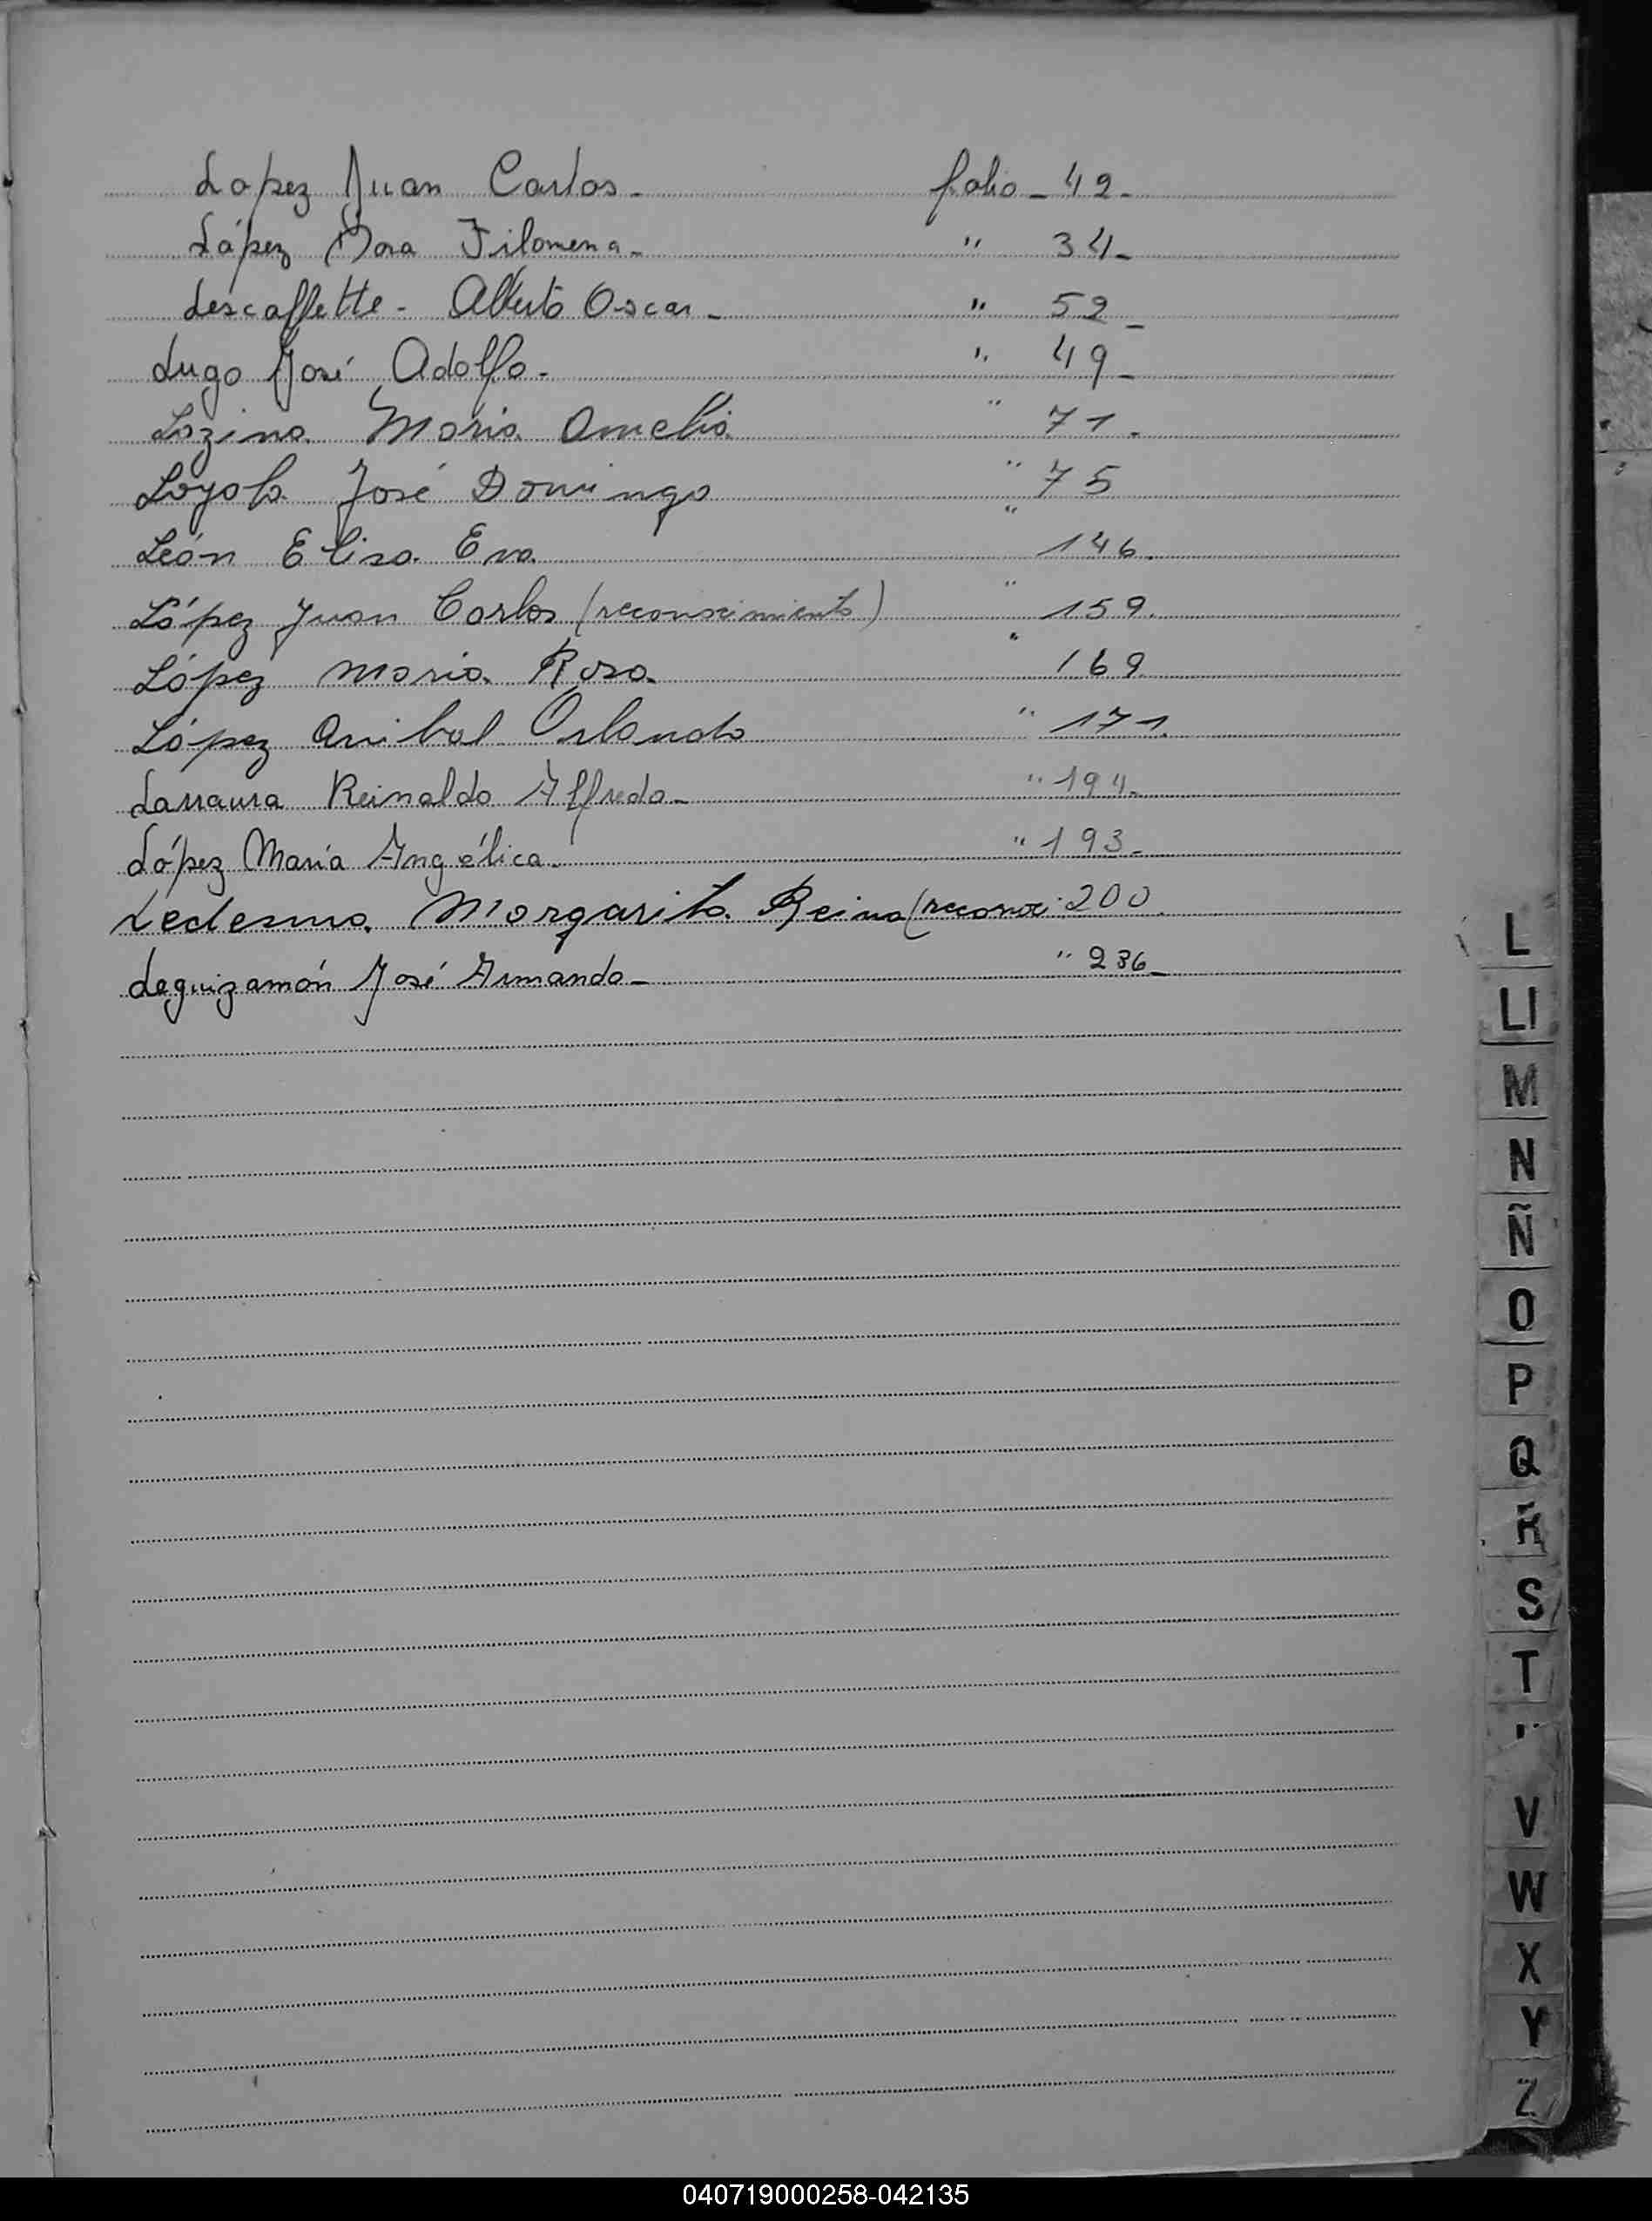 Lopez Juan Carlos - folio - 42 -
López Mora Filomena - " 34 -
Lescaffette - Alberto Oscar - " 52 -
Lugo José Adolfo - " 49 -
Lozina Maria Amelia " 71.
Loyola José Domingo " 75
León Elisa Eva " 146.
López Juan Carlos (reconocimiento) " 159.
López Maria Rosa " 169.
López Anibal Orlando " 171.
Larraura Reinaldo Alfredo - " 194 -
López María Angélica - " 193 -
Ledesma Margarita Reina (reconoc. 200.
Leguizamón José Armando - " 236 -
L
Ll
M
N
Ñ
O
P
Q
R
S
T
V
W
X
Y
Z
040719000258-042135